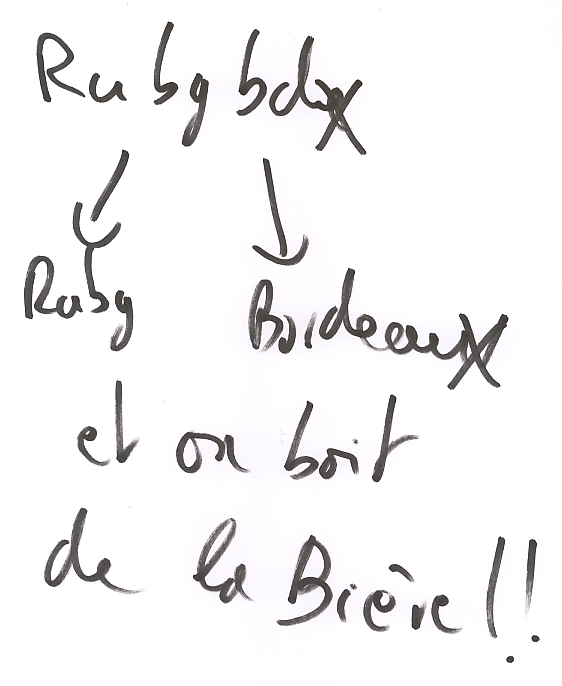 Rubybdx
Ruby Bordeaux
et on boit
de la Bière !!